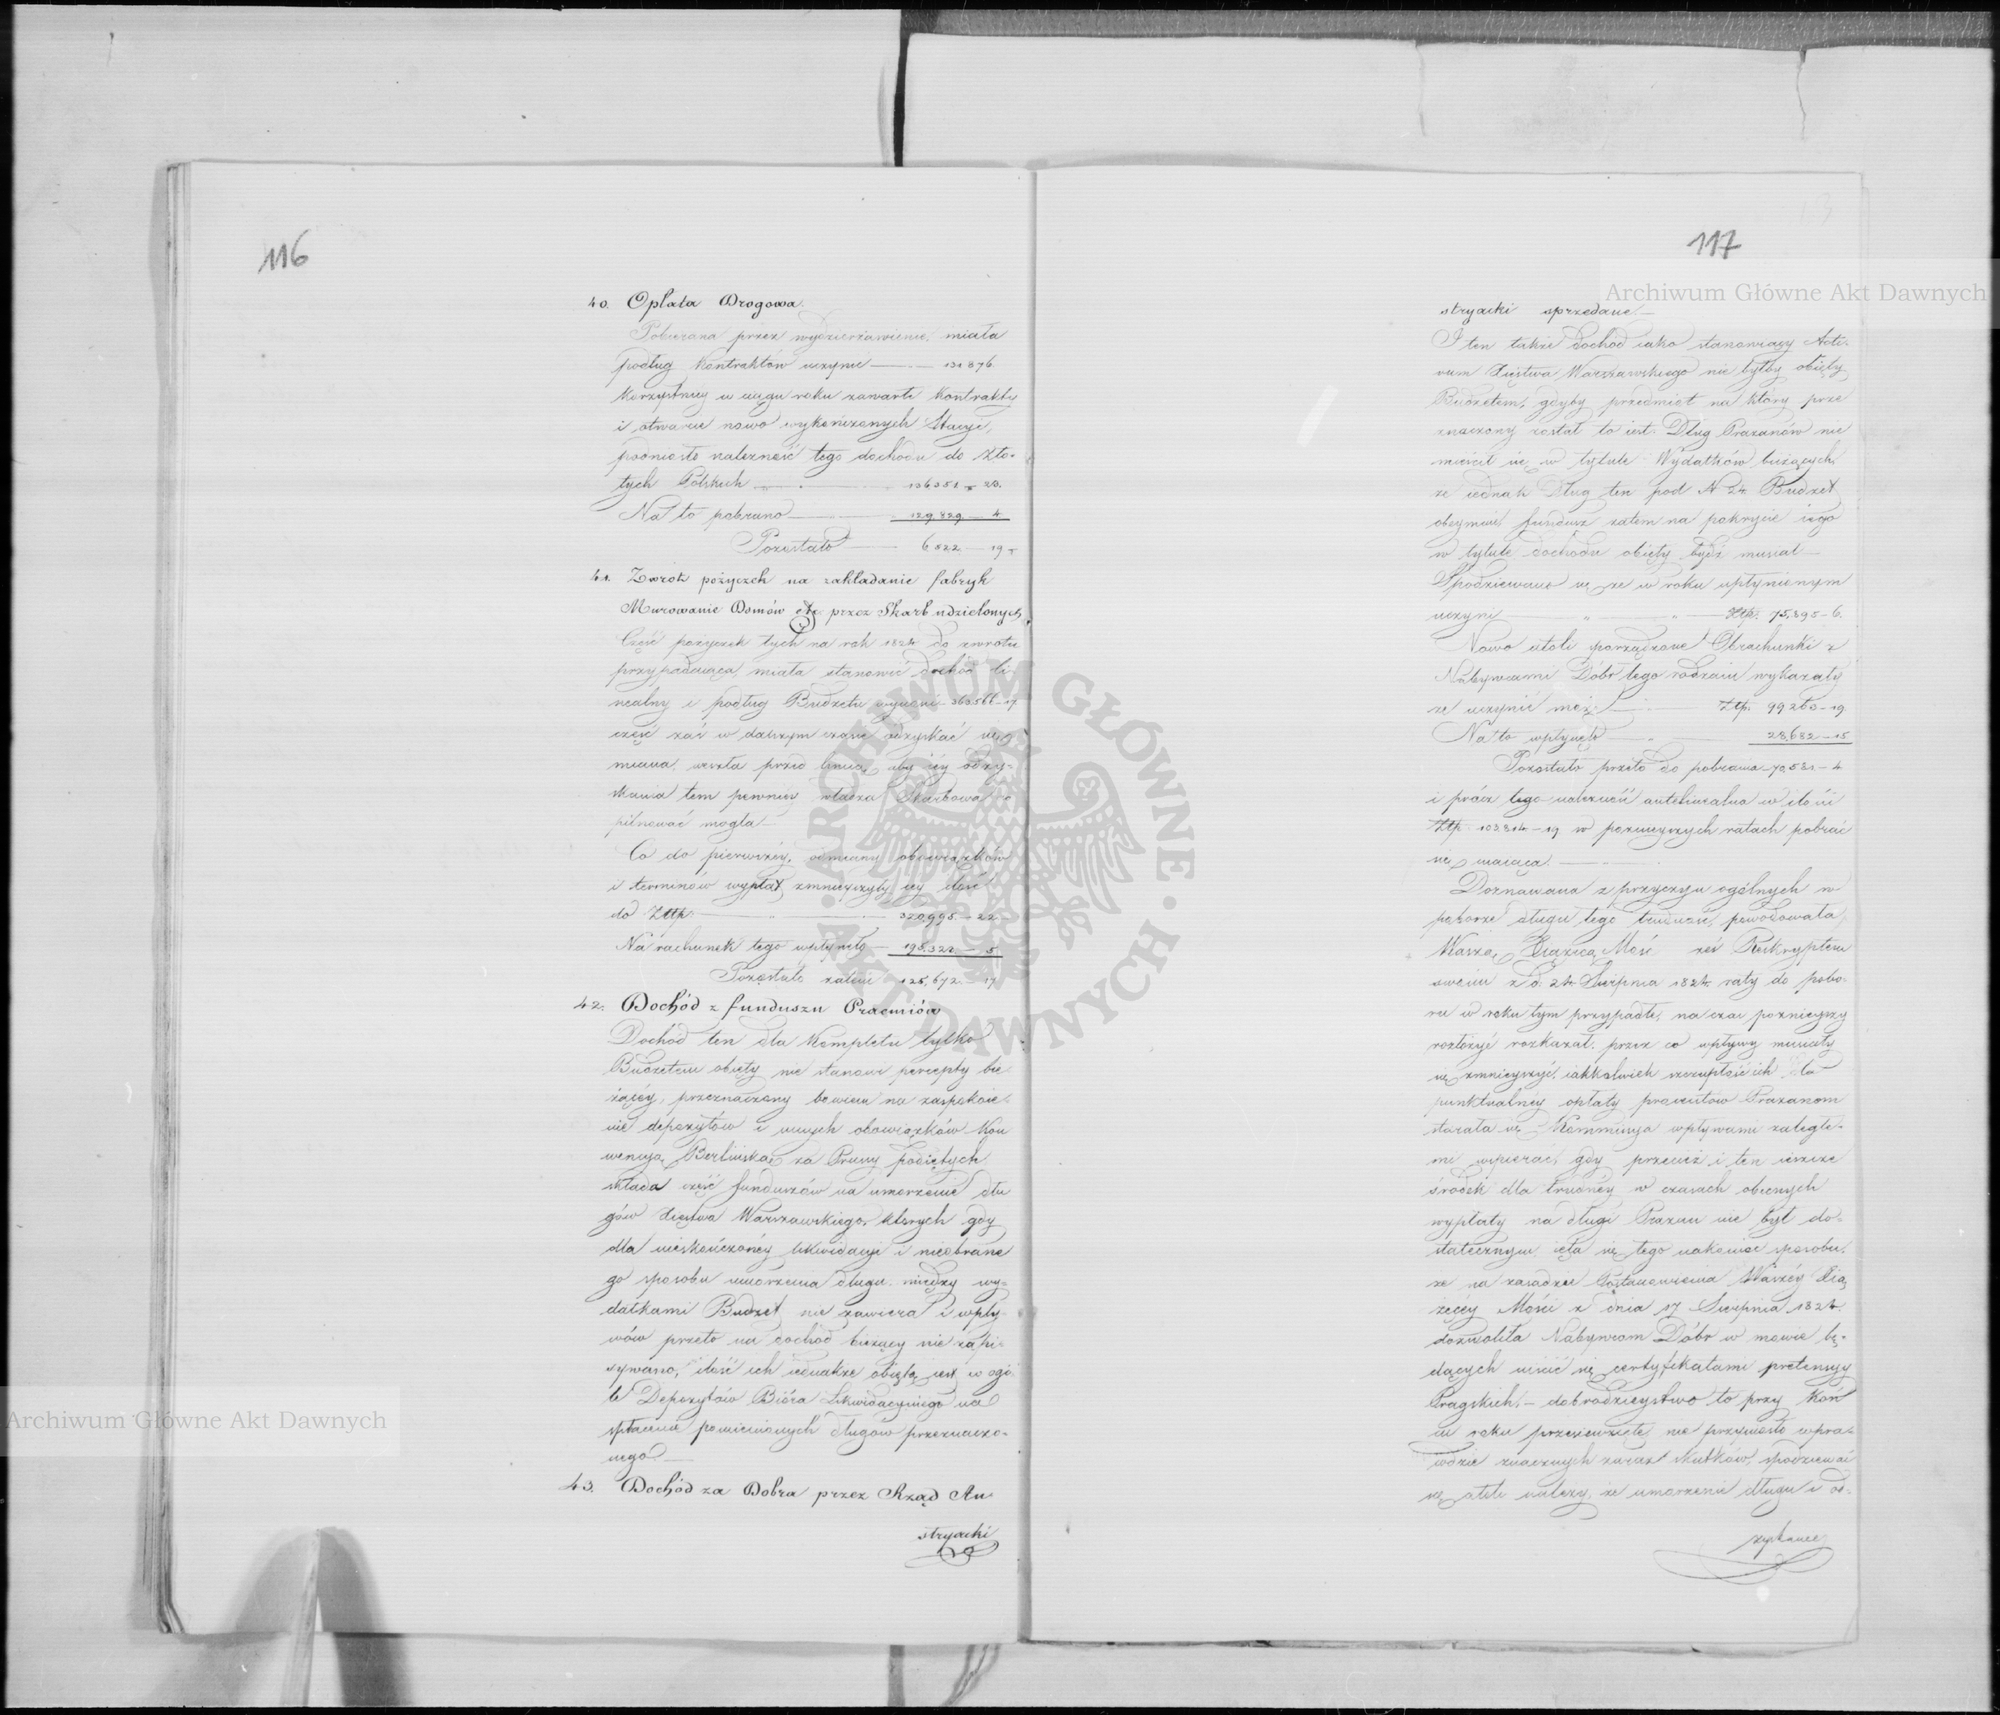 116
40. Opłata Drogowa.
Pobierana przez wydzierżawienie, miała
podług Kontraktów uczynić 131876
Korzystniey w ciągu roku zawarte Kontrakty
i otwarcie nowo wykończonych Stacyi,
podniosło należność tego dochodu do Zło-
tych Polskich 136351 - 23.
Na to pobrano 129,829 - 4
Pozostało 6522 - 19
41. Zwrót pożyczek na zakładanie fabryk
Murowanie Domów etc. przez Skarb udzielonych.
Część pożyczek tych na rok 1824 do zwrotu
przypadaiąca, miała stanowić dochód li-
nealny i podług Budżetu wynosić 363566 - 17
część zaś w dalszym czasie odzyskać się
miana, weszła przed linią, aby iéy odzy-
skania tem pewniey władza Skarbowa
pilnować mogła
Co do pierwszéy, odmiany obowiązków
i terminów wypłat zmnieyszyły iey ilość
do Złtp. 320,995 - 22
Na rachunek tego wpłynęło 195,322 - 5
Pozostało zatem 125,672 - 17
42. Dochód z funduszu Praemiów
Dochód ten dla Kompletu tylko
Budżetem obięty nie stanowi percepty bie-
żącéy, przeznaczony bowiem na zaspokoie-
nie depozytów i innych obowiązków Kon
wencyą Berlińską za Prusy podiętych
składa część funduszów na umorzenie dłu
gów Xięstwa Warszawskiego, których gdy
dla nieskończonéy likwidacyi i nieobrane
go sposobu umorzenia długu, między wy-
datkami Budżet nie zawiera i wpły-
wów przeto na dochód bieżący nie zapi-
sywano, ilość ich iednakże obięta iest w ogó-
le Depozytów Bióra Likwidacyinego na
spłacenie pomienionych długów przeznaczo-
nego
43. Dochód za Dobra przez Rząd Au-
stryacki
117
stryacki sprzedane
I ten także dochód iako stanowiący Acti-
vum Xięstwa Warszawskiego nie byłby obięty
Budżetem, gdyby przedmiot na który prze
znaczony został to iest: Dług Prażanów nie
mieścił się w tytule Wydatków bieżących,
że iednak Dług ten pod N 24 Budżet
obeymuie, fundusz zatem na pokrycie iego
w tytule dochodu obięty bydź musiał
Spodziewano się że w roku upłynionym
uczyni Złtp. 75,895 - 6.
Nowo atoli sporządzone Obrachunki z
Nabywcami Dóbr tego rodzaiu wykazały
że uczynić może Złtp. 99263 - 19
Na to wpłynęło 28,682 - 15
Pozostało przeto do pobrania 70,581 - 4
i prócz tego należność antelinealna w ilości
Złtp. 103,814 - 19 w poznieyszych ratach pobrać
się maiąca.
Doznawana z przyczyn ogólnych w
poborze długu tego trudność, powodowała
Waszą Xiążęcą Mość żeś Reskryptem
swoim z d. 24 Sierpnia 1824 raty do pobo-
ru w roku tym przypadłe, na czas poznieyszy
rozłożyć rozkazał, przez co wpływy musiały
się zmnieyszyć, iakkolwiek szczupłość ich dla
punktualney opłaty procentów Prażanom
starała się Kommissya wpływami zaległe-
mi wspierać, gdy przecież i ten ieszcze
środek dla trudnéy w czasach obecnych
wypłaty na długi Pragan nie był do-
statecznym, ięła się tego nakoniec sposobu,
że na zasadzie Postanowienia Waszéy Xią
żęcéy Mości z dnia 17 Sierpnia 1824
dozwoliła Nabywcom Dóbr w mowie bę-
dących uiścić się certyfikatami pretensyy
Pragskich, - dobrodzieystwo to przy Koń
cu roku przesięwzięte, nie przyniosło wpra-
wdzie znacznych zaraz skutków, spodziewać
się atoli należy, że umorzenie długu i od-
zyskanie
Archiwum Główne Akt Dawnych
Archiwum Główne Akt Dawnych
ARCHIWUM GŁÓWNE AKT DAWNYCH